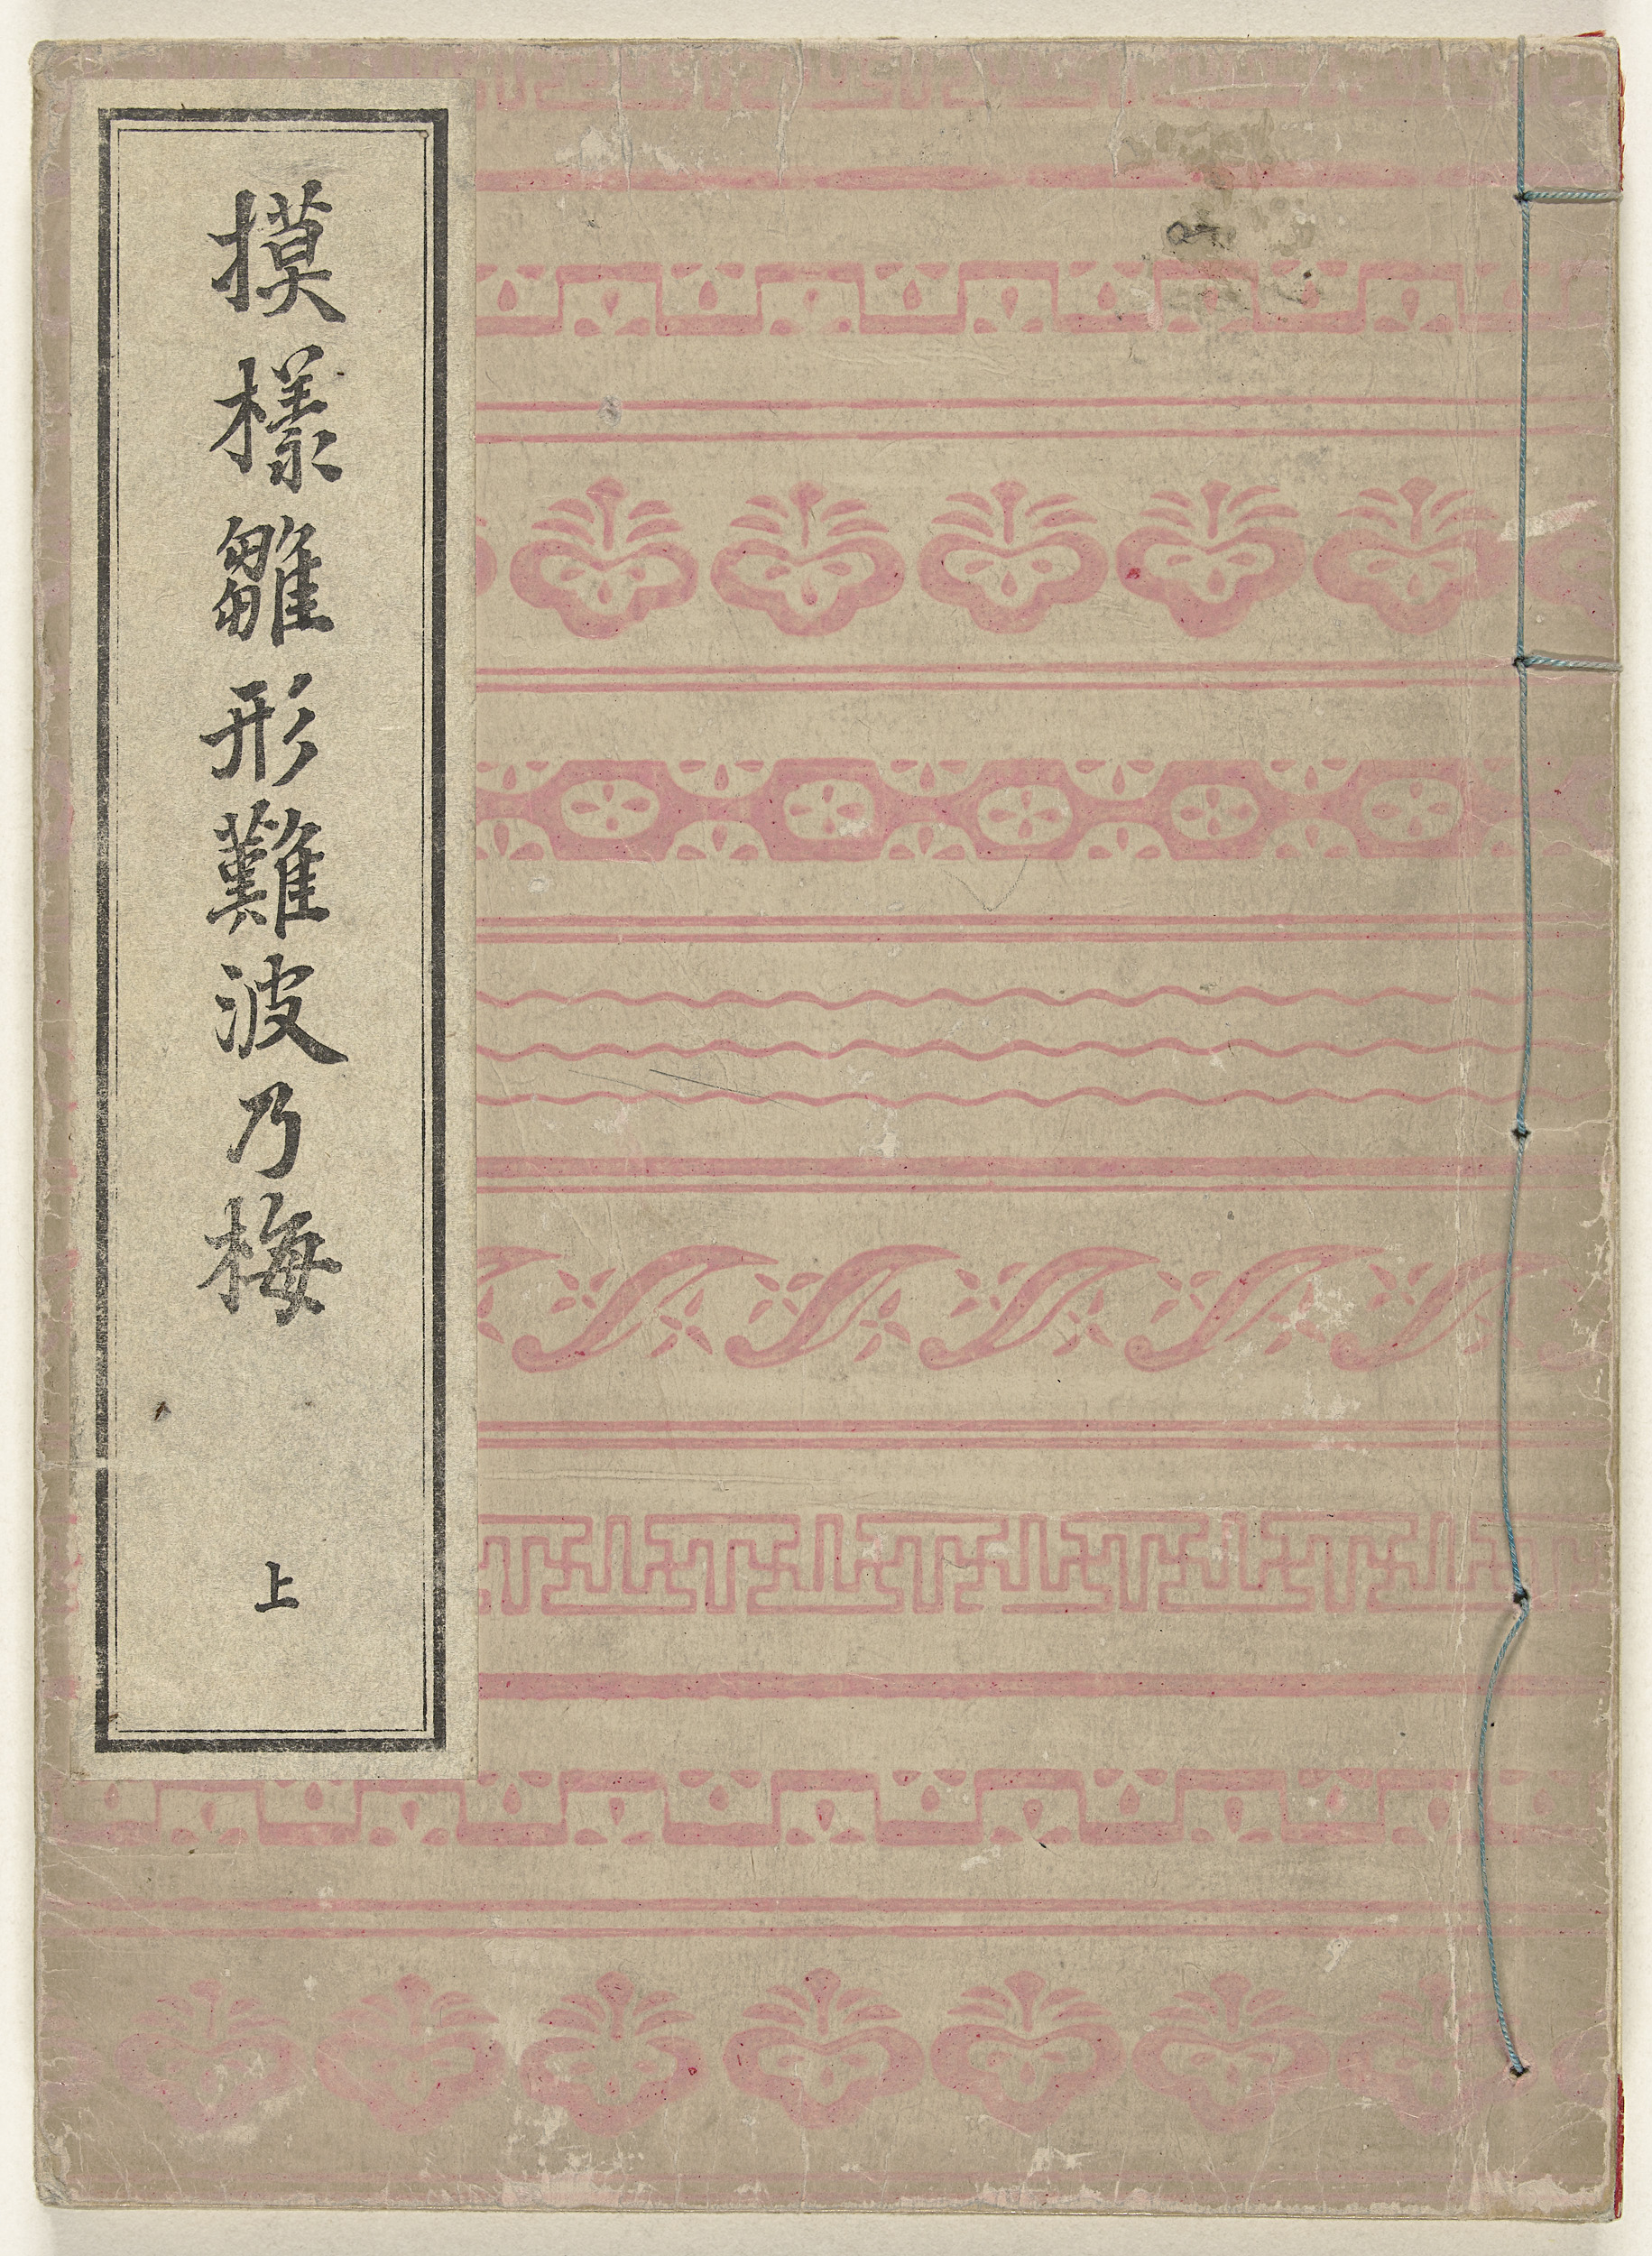 摸樣雛形難波乃梅
上